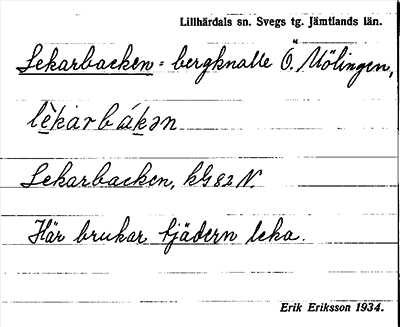 Lillhärdals sn. Svegs tg. Jämtlands län.
Lekarbacken = bergknalle Ö. Mölingen,
lèkarbákən
Lekarbacken, kG 82 N.
Här brukar tjädern leka.
Erik Eriksson 1934.